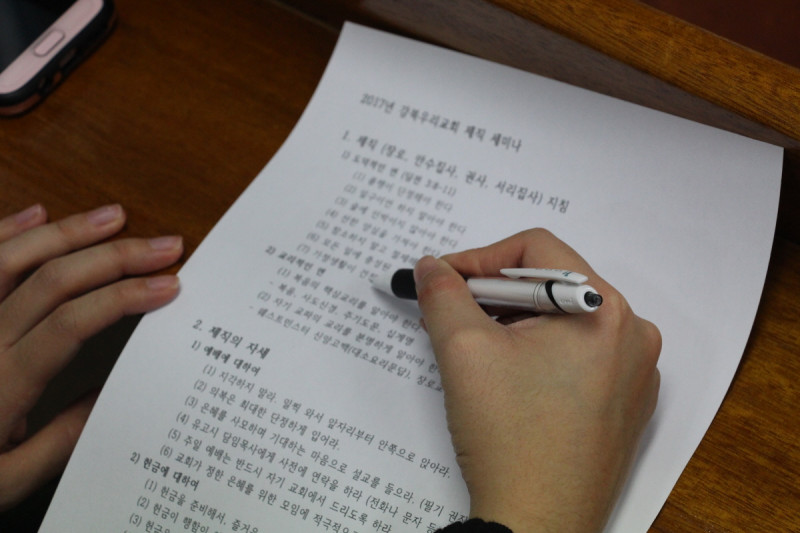 2017년 강북우리교회 제직 세미나
1. 제직 (장로, 안수집사, 권사, 서리집사) 지침
1) 도덕적인 면 (딤전 3:8-11)
(1) 품행이 단정해야 한다
(2) 일구이언 하지 말아야 한다
(3) 술에 인박이지 말아야 한다
(4) 선한 양심을 가져야 한다
(5) 참소하지 말고 절제
(6) 모든 일에 충성
(7) 가정생활이 건전
2) 교리적인 면
(1) 복음의 핵심교리를 알아야 한다
- 복음, 사도신경, 주기도문, 십계명
(2) 자기 교파의 교리를 분명하게 알아야 한
- 웨스트민스터 신앙고백(대소요리문답), 장로교
2. 제직의 자세
1) 예배에 대하여
(1) 지각하지 말라. 일찍 와서 앞자리부터 안쪽으로 앉아라.
(2) 의복은 최대한 단정하게 입어라.
(3) 은혜를 사모하며 기대하는 마음으로 설교를 들으라. (필기 권장
(4) 유고시 담임목사에게 사전에 연락을 하라 (전화나 문자 등
(5) 주일 예배는 반드시 자기 교회에서 드리도록 하라.
(6) 교회가 정한 은혜를 위한 모임에 적극적으
2) 헌금에 대하여
(1) 헌금을 준비해서, 즐거운
(2) 헌금이 행함이
(3) 헌금은